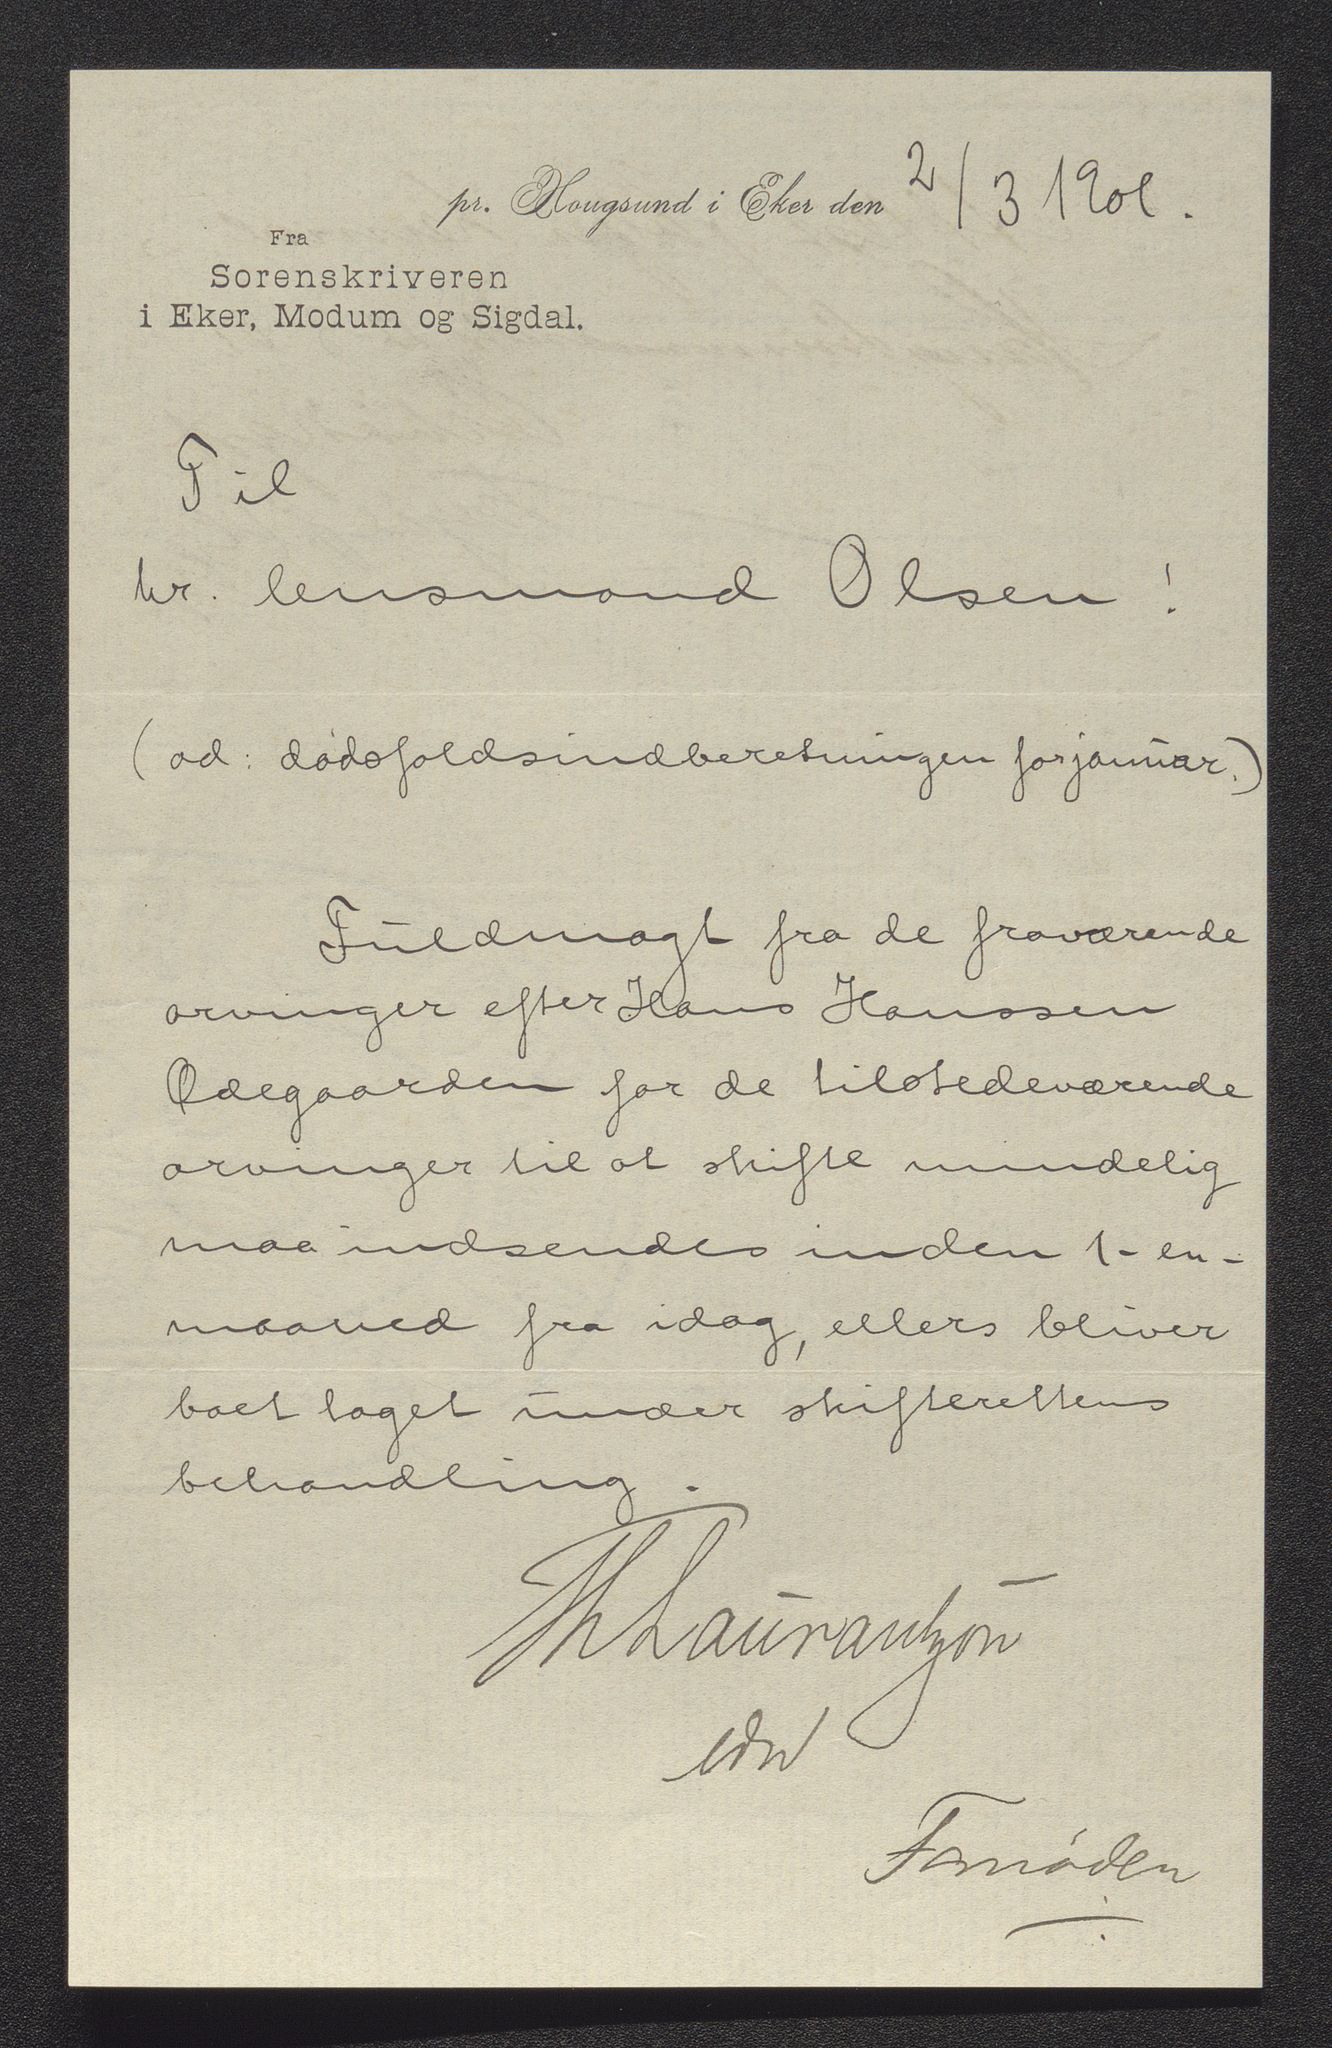 pr. Hougsund i Eker den 2/3 1901.
Fra
Sorenskriveren
i Eker, Modum og Sigdal.
Til
hr. lensmand Olsen!
(ad: dødsfaldsindberetningen for januar.)
Fuldmagt fra de fraværende
arvinger efter Hans Hanssen
Ødegaarden for de tilstedeværende
arvinger til at skifte mindelig
maa indsendes inden 1 - en -
maaned fra idag, ellers bliver
boet taget under skifterettens
behandling.
Th Laurantzon